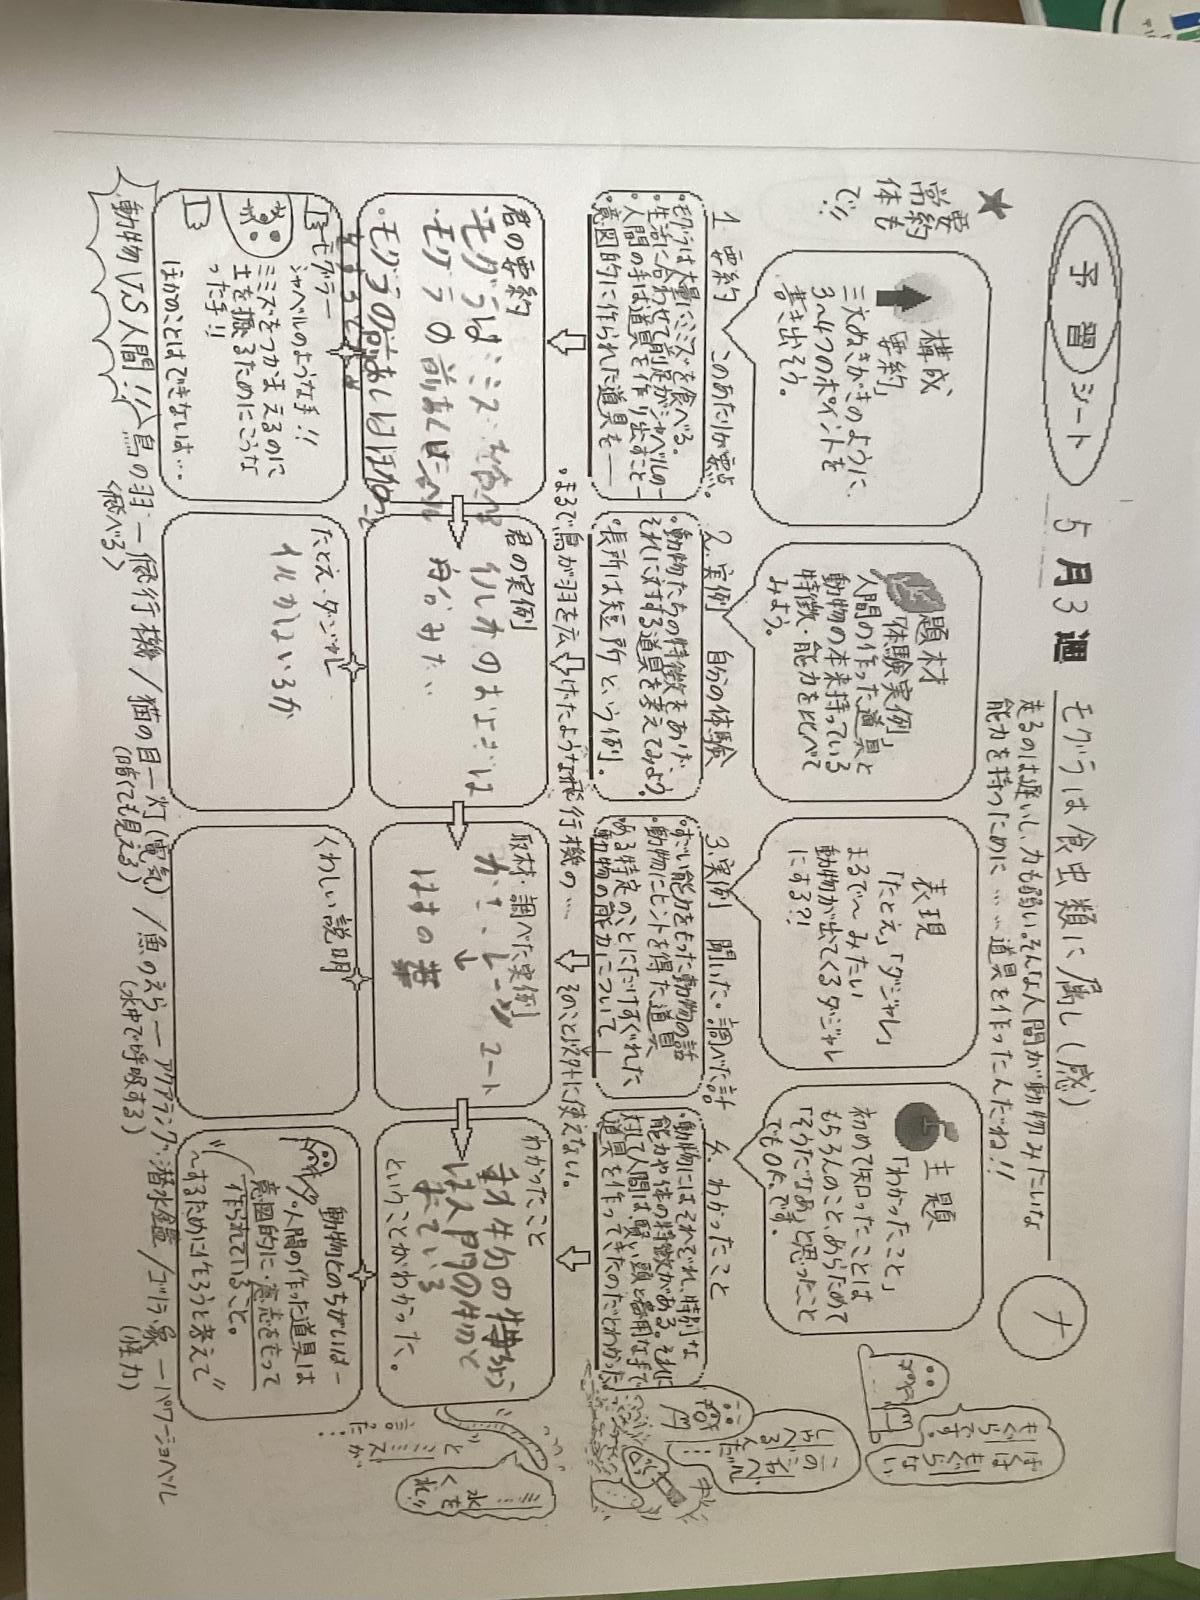 予習シート
5月3週
モグラは食虫類に属し(感)
走るのは遅いし、力も弱い。そんな人間が動物みたいな
能力を持つために……道具を作ったんだね!!
ナ
★
要約
常体も
で!!
構成
「要約」
三えぬきがきのように、
3〜4つのポイントを
書き出そう。
題材
「体験実例」
人間の作った道具と
動物の本来持っている
特徴・能力を比べて
みよう。
表現
「たとえ」「ダジャレ」
まるで〜みたい
動物が出てくるダジャレ
にする?!
主題
「わかったこと」
初めて知ったことは
もちろんのこと、あらためて
「そうだなあ」と思ったこと
でもOK.です。
ぼくは
もぐらない
もぐら
です。
1. 要約 このあたりが要点。
・モグラは大量にミミズを食べる。
・生活に合わせて前足がシャベルの―
・人間の手は道具を作り出すこと―
・意図的に作られた道具を――
2. 実例 自分の体験
・動物たちの特徴をあげ、
それに対する道具を考えてみよう。
・長所は短所という例。
3. 実例 聞いた。調べた話
・すごい能力をもった動物の話
・動物にヒントを得た道具
・ある特定のことにだけすぐれた
動物の能力について
4. わかったこと
・動物にはそれぞれ、特別な
能力や体の特徴がある。それに
対して人間は、賢い頭と器用な手で
道具を作ってきたのだとわかった。
この
シャベル
しゃべる
んだ…!
・まるで鳥が羽を広げたような飛行機の……
そのこと以外に使えない。
君の要約
・モグラはミミズを
・モグラの前あしは
・モグラの前あしはほかのこと
君の実例
イルカのおよぎは
みたい
取材・調べた実例
↓
わかったこと
動物の特ちょう
は人間の物と
にている
ということがわかった。
とミミズが
言った…
ミミ…
水くも
水!!
モグラー
シャベルのような手!!
ミミズをつかまえるのに
土を掘るためにこうな
った手!!
ほかのことはできないは…
たとえ・ダジャレ
イルカはいるか
くわしい説明
動物とのちがいは―
人間の作った道具は
意図的に・意志をもって
作られていること。
"〜するために作ろうと考えて"
動物VS人間!!
鳥の羽―飛行機/猫の目―灯(電気)/魚のえら―アクアラング・潜水艦/ゴリラ・象―パワーショベル
(飛べる)
(暗くても見える)
(水中で呼吸する)
(怪力)